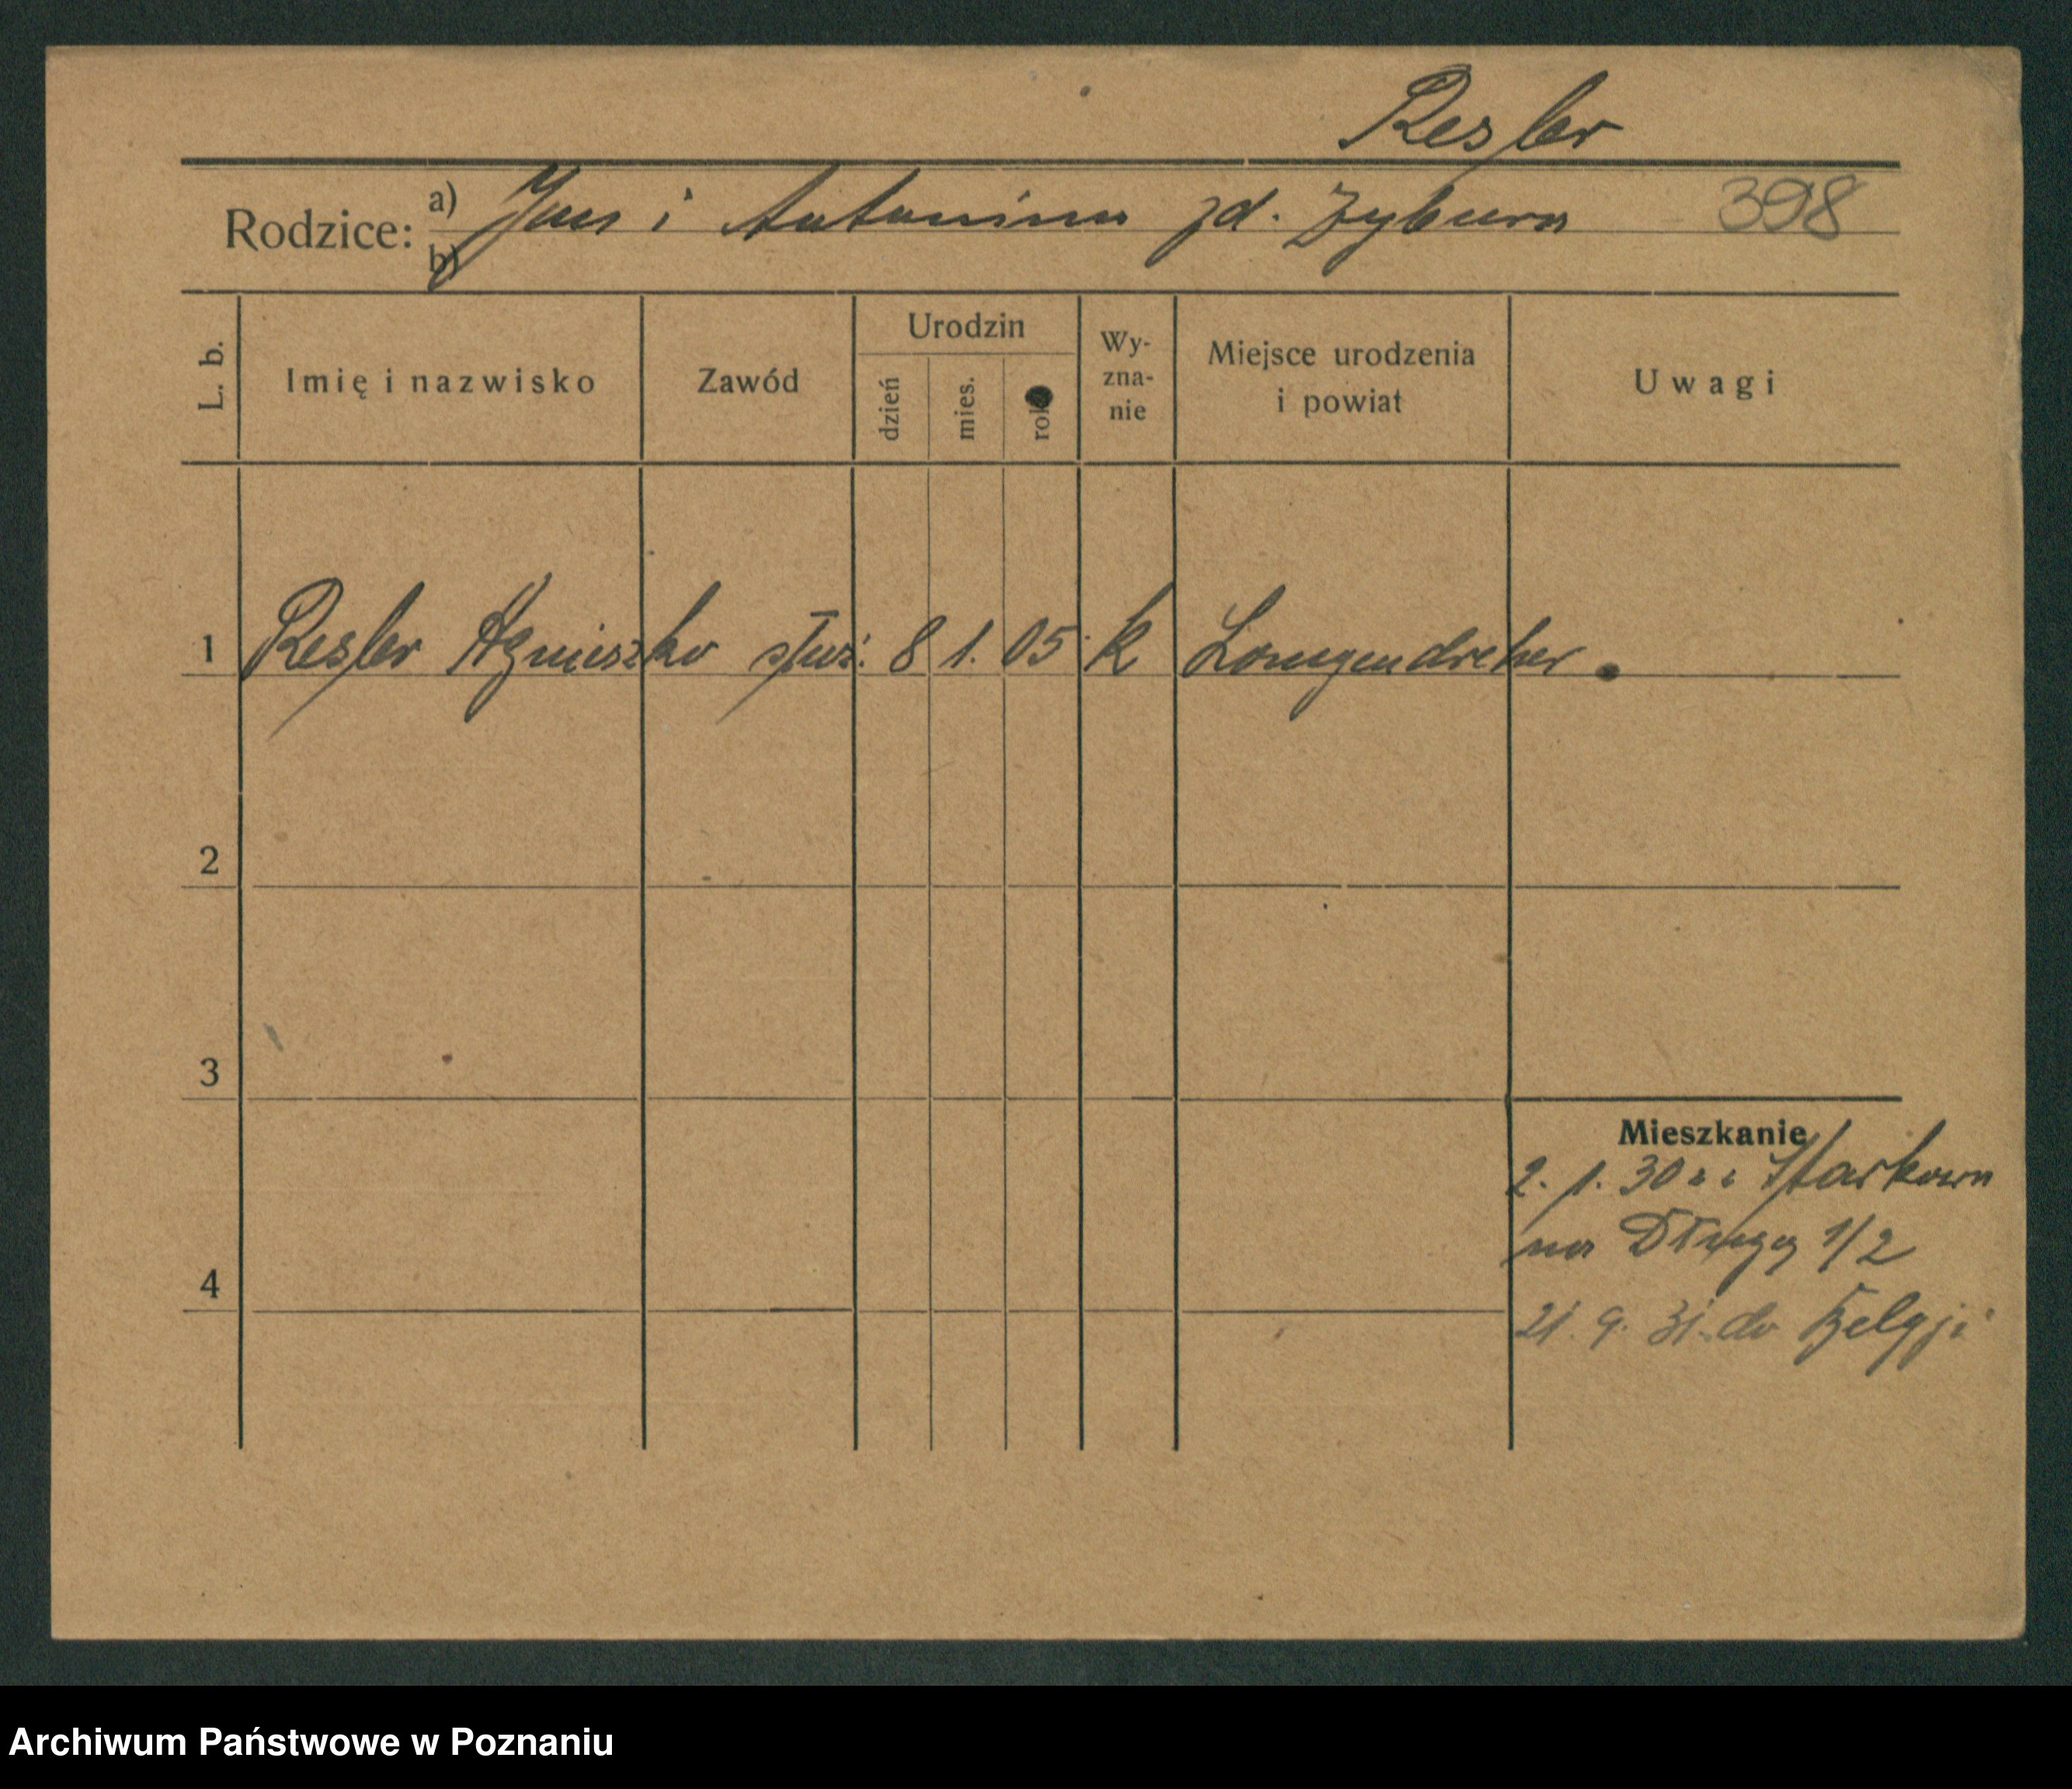 Resler
Rodzice: a) Jan i Antonina zd. Zybura 398
b)
L. b. Imię i nazwisko Zawód Urodzin dzień mies. rok Wy-zna-nie Miejsce urodzenia i powiat Uwagi
1 Resler Agnieszka służ. 8 1. 05 k Langendreher.
2
3
Mieszkanie
2. 1. 30 z Starkowa
na Długą 1/2
4
21. 9. 31. do Belgji
Archiwum Państwowe w Poznaniu